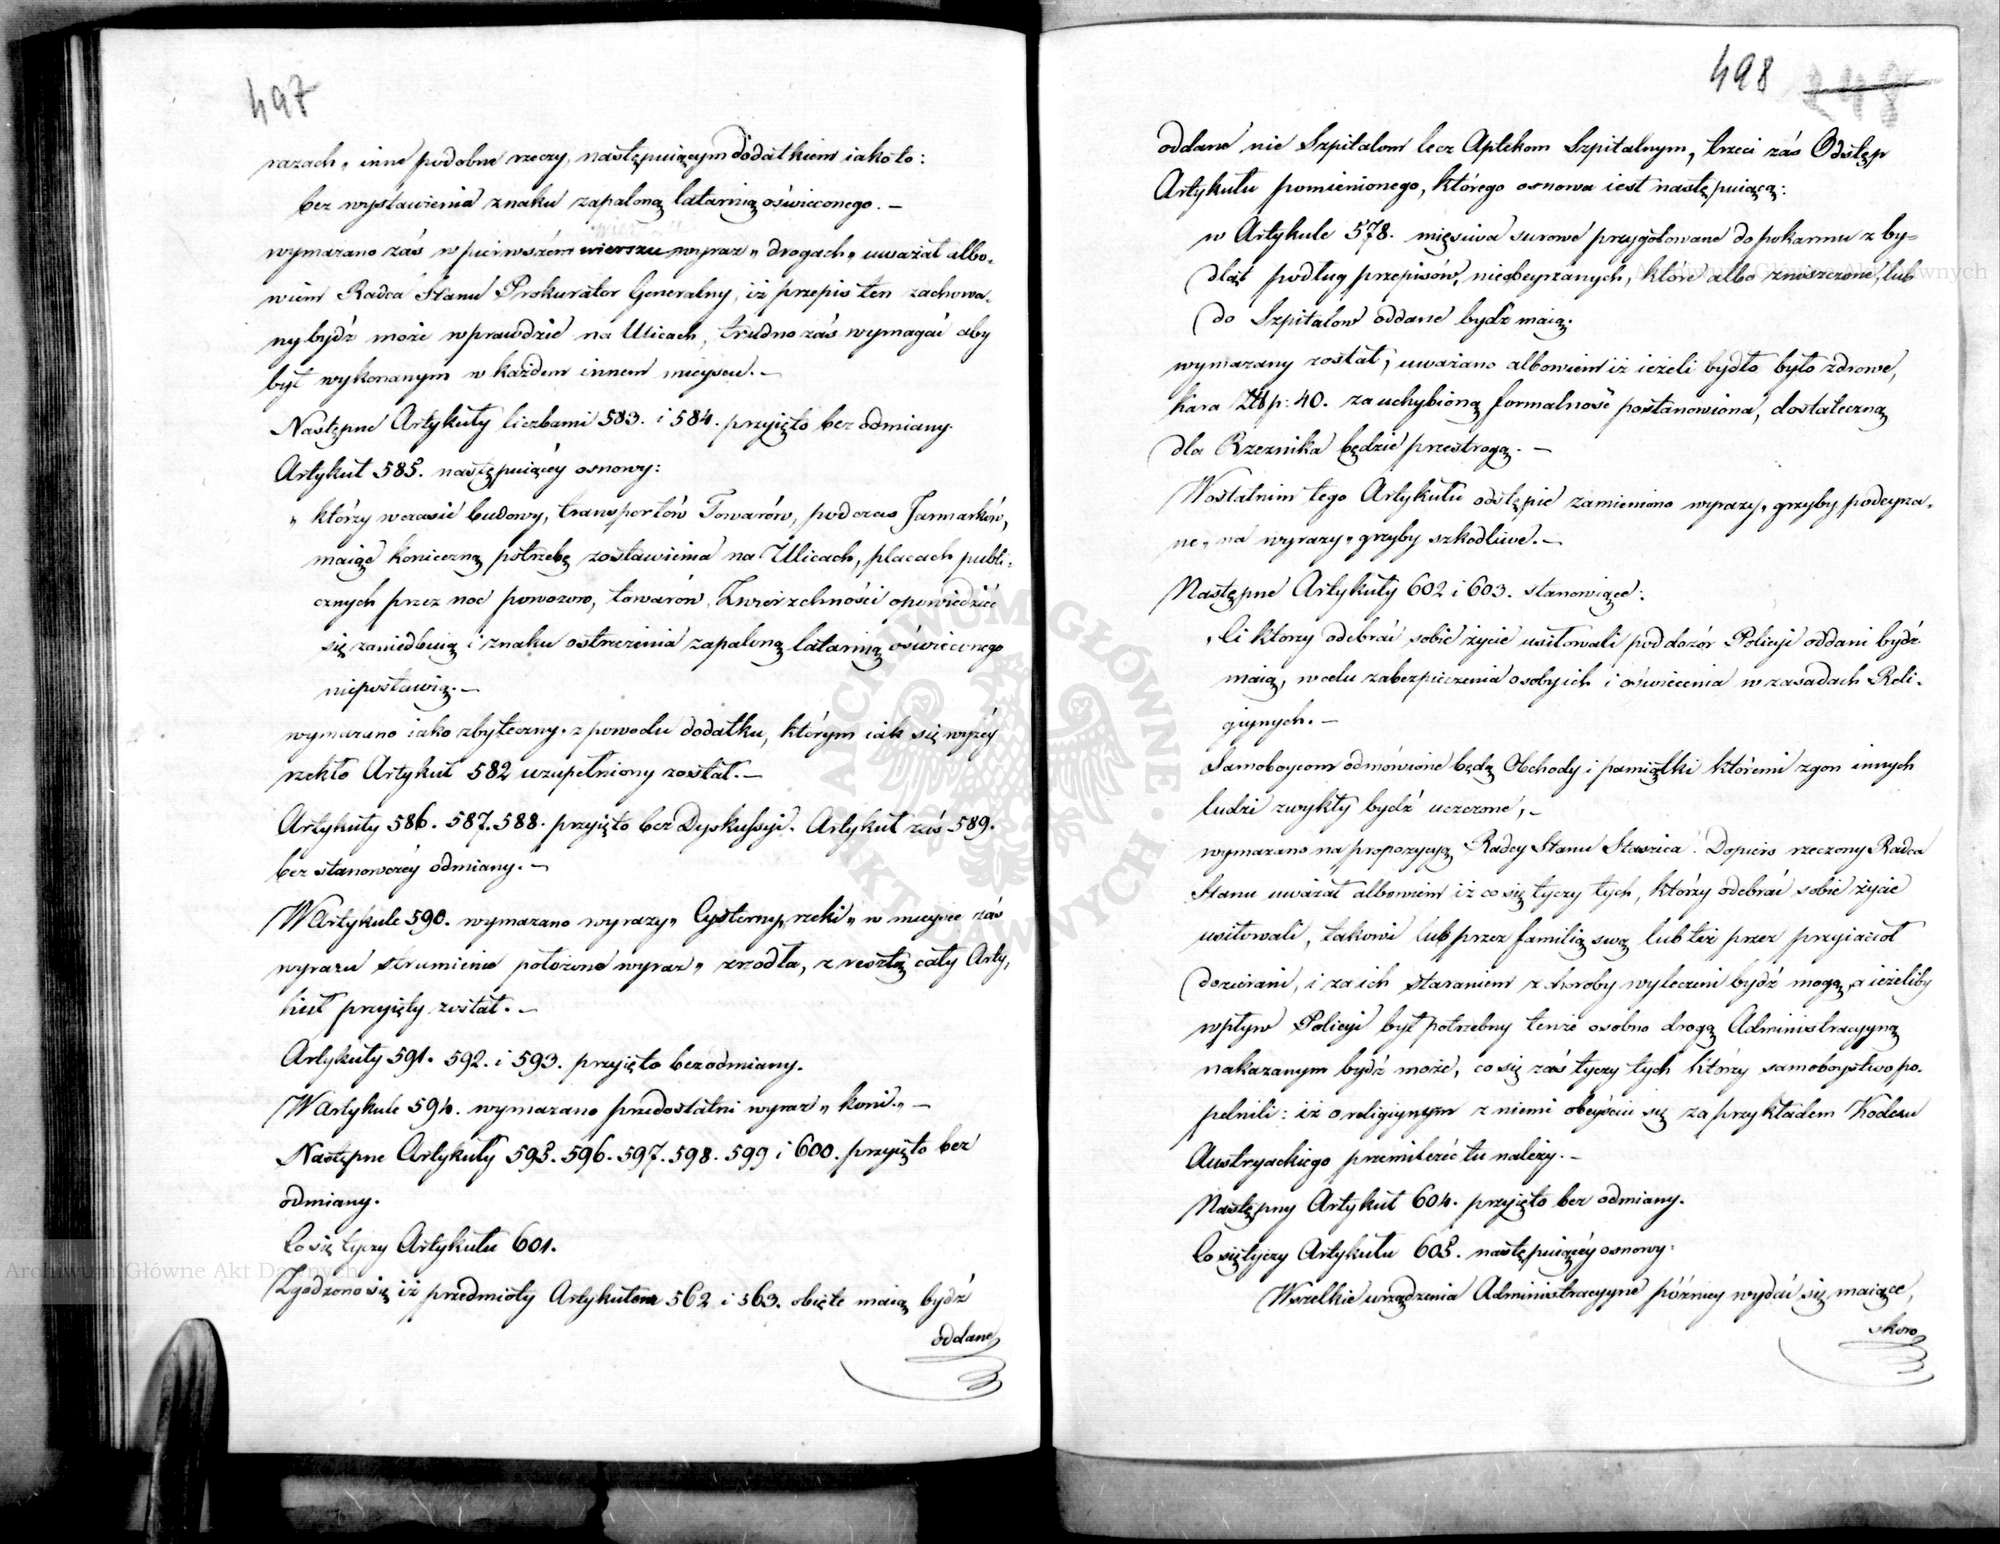 497
razach„ inne podobne rzeczy, następuiącym dodatkiem iako to:
bez wystawienia znaku zapaloną latarnią oświeconego. –
wymazano zaś w pierwszém wierszu wyraz „ drogach „ uważał albo-
wiem Radca Stanu Prokurator Generalny, iż przepis ten zachowa-
ny bydź może wprawdzie na Ulicach, trudno zaś wymagać aby
był wykonanym w każdem innem mieyscu. –
Następne Artykuły liczbami 583. i 584. przyięto bez odmiany.
Artykuł 585. następuiącéy osnowy:
„ którzy w czasie budowy, transportów Towarów, podczas Jarmarków,
maiąc konieczną potrzebę zostawienia na Ulicach, placach publi-
cznych przez noc powozow, towarów, Zwierzchności opowiedzieć
się zaniedbuią i znaku ostrzeżenia zapaloną latarnią oświeconego
niepostawią. –
wymazano iako zbyteczny, z powodu dodatku, którym iak się wyżéy
rzekło Artykuł 582 uzupełniony został. –
Artykuły 586. 587. 588. przyięto bez Dyskussyi. Artykuł zaś 589.
bez stanowczéy odmiany. –
W Artykule 590. wymazano wyrazy „ Cysterny, rzeki „ w mieysce zaś
wyrazu strumienie położono wyraz „ zrzodła, z resztą cały Arty,
kuł przyięty został. –
Artykuły 591. 592. i 593. przyięto bez odmiany.
W Artykule 594. wymazano przedostatni wyraz „ koni „ –
Następne Artykuły 595. 596. 597. 598. 599 i 600. przyięto bez
odmiany.
Co się tyczy Artykułu 601.
Zgodzono się iż przedmioty Artykułem 562 i 563. obięte maią bydź
oddane
498 248
oddane nie Szpitalom lecz Aptekom Szpitalnym, trzeci zaś Odstęp
Artykułu pomienionego, którego osnowa iest następuiącą:
w Artykule 578. mięsiwa surowe przygotowane do pokarmu z by-
dląt podług przepisów, nieobeyrzanych, które albo zniszczone, lub
do Szpitalow oddane bydź maią.
wymazany został; uważano albowiem iż ieżeli bydło było zdrowe,
kara Złłp: 40. za uchybioną formalność postanowiona, dostateczną
dla Rzeznika będzie przestrogą. –
W ostatnim tego Artykułu odstępie zamieniono wyrazy „ grzyby podeyrza-
ne „ na wyrazy „ grzyby szkodliwe. –
Następne Artykuły 602 i 603. stanowiące:
„ Ci ktorzy odebrać sobie życie usiłowali pod dozór Policyi oddani bydź
maią, w celu zabezpieczenia osoby ich i oświecenia w zasadach Reli-
giynych. –
Samoboycom odmówione będą Obchody i pamiątki któremi zgon innych
ludzi zwykły bydź uczczone, –
wymazano na propozycyą Radcy Stanu Staszica. Dopiero rzeczony Radca
Stanu uważał albowiem iż co się tyczy tych, którzy odebrać sobie życie
usiłowali, takowi lub przez familią swą lub też przez przyiaciół
dozierani, i za ich staraniem z choroby wyleczeni bydź mogą, a ieżeliby
wpływ Policyi był potrzebny tenże osóbno drogą Administracyyną
nakazanym bydź może, co się zaś tyczy tych którzy samoboystwo po-
pełnili: iż o religiynym z niemi obeyściu się za przykładem Kodexu
Austryackiego przemilczéć tu należy. –
Następny Artykuł 604. przyięto bez odmiany.
Co się tyczy Artykułu 605. następuiącéy osnowy:
Wszelkie urządzenia Administracyyne późniey wydać się maiące,
skoro
ARCHIWUM GŁÓWNE AKT DAWNYCH
Archiwum Główne Akt Dawnych
Archiwum Główne Akt Dawnych